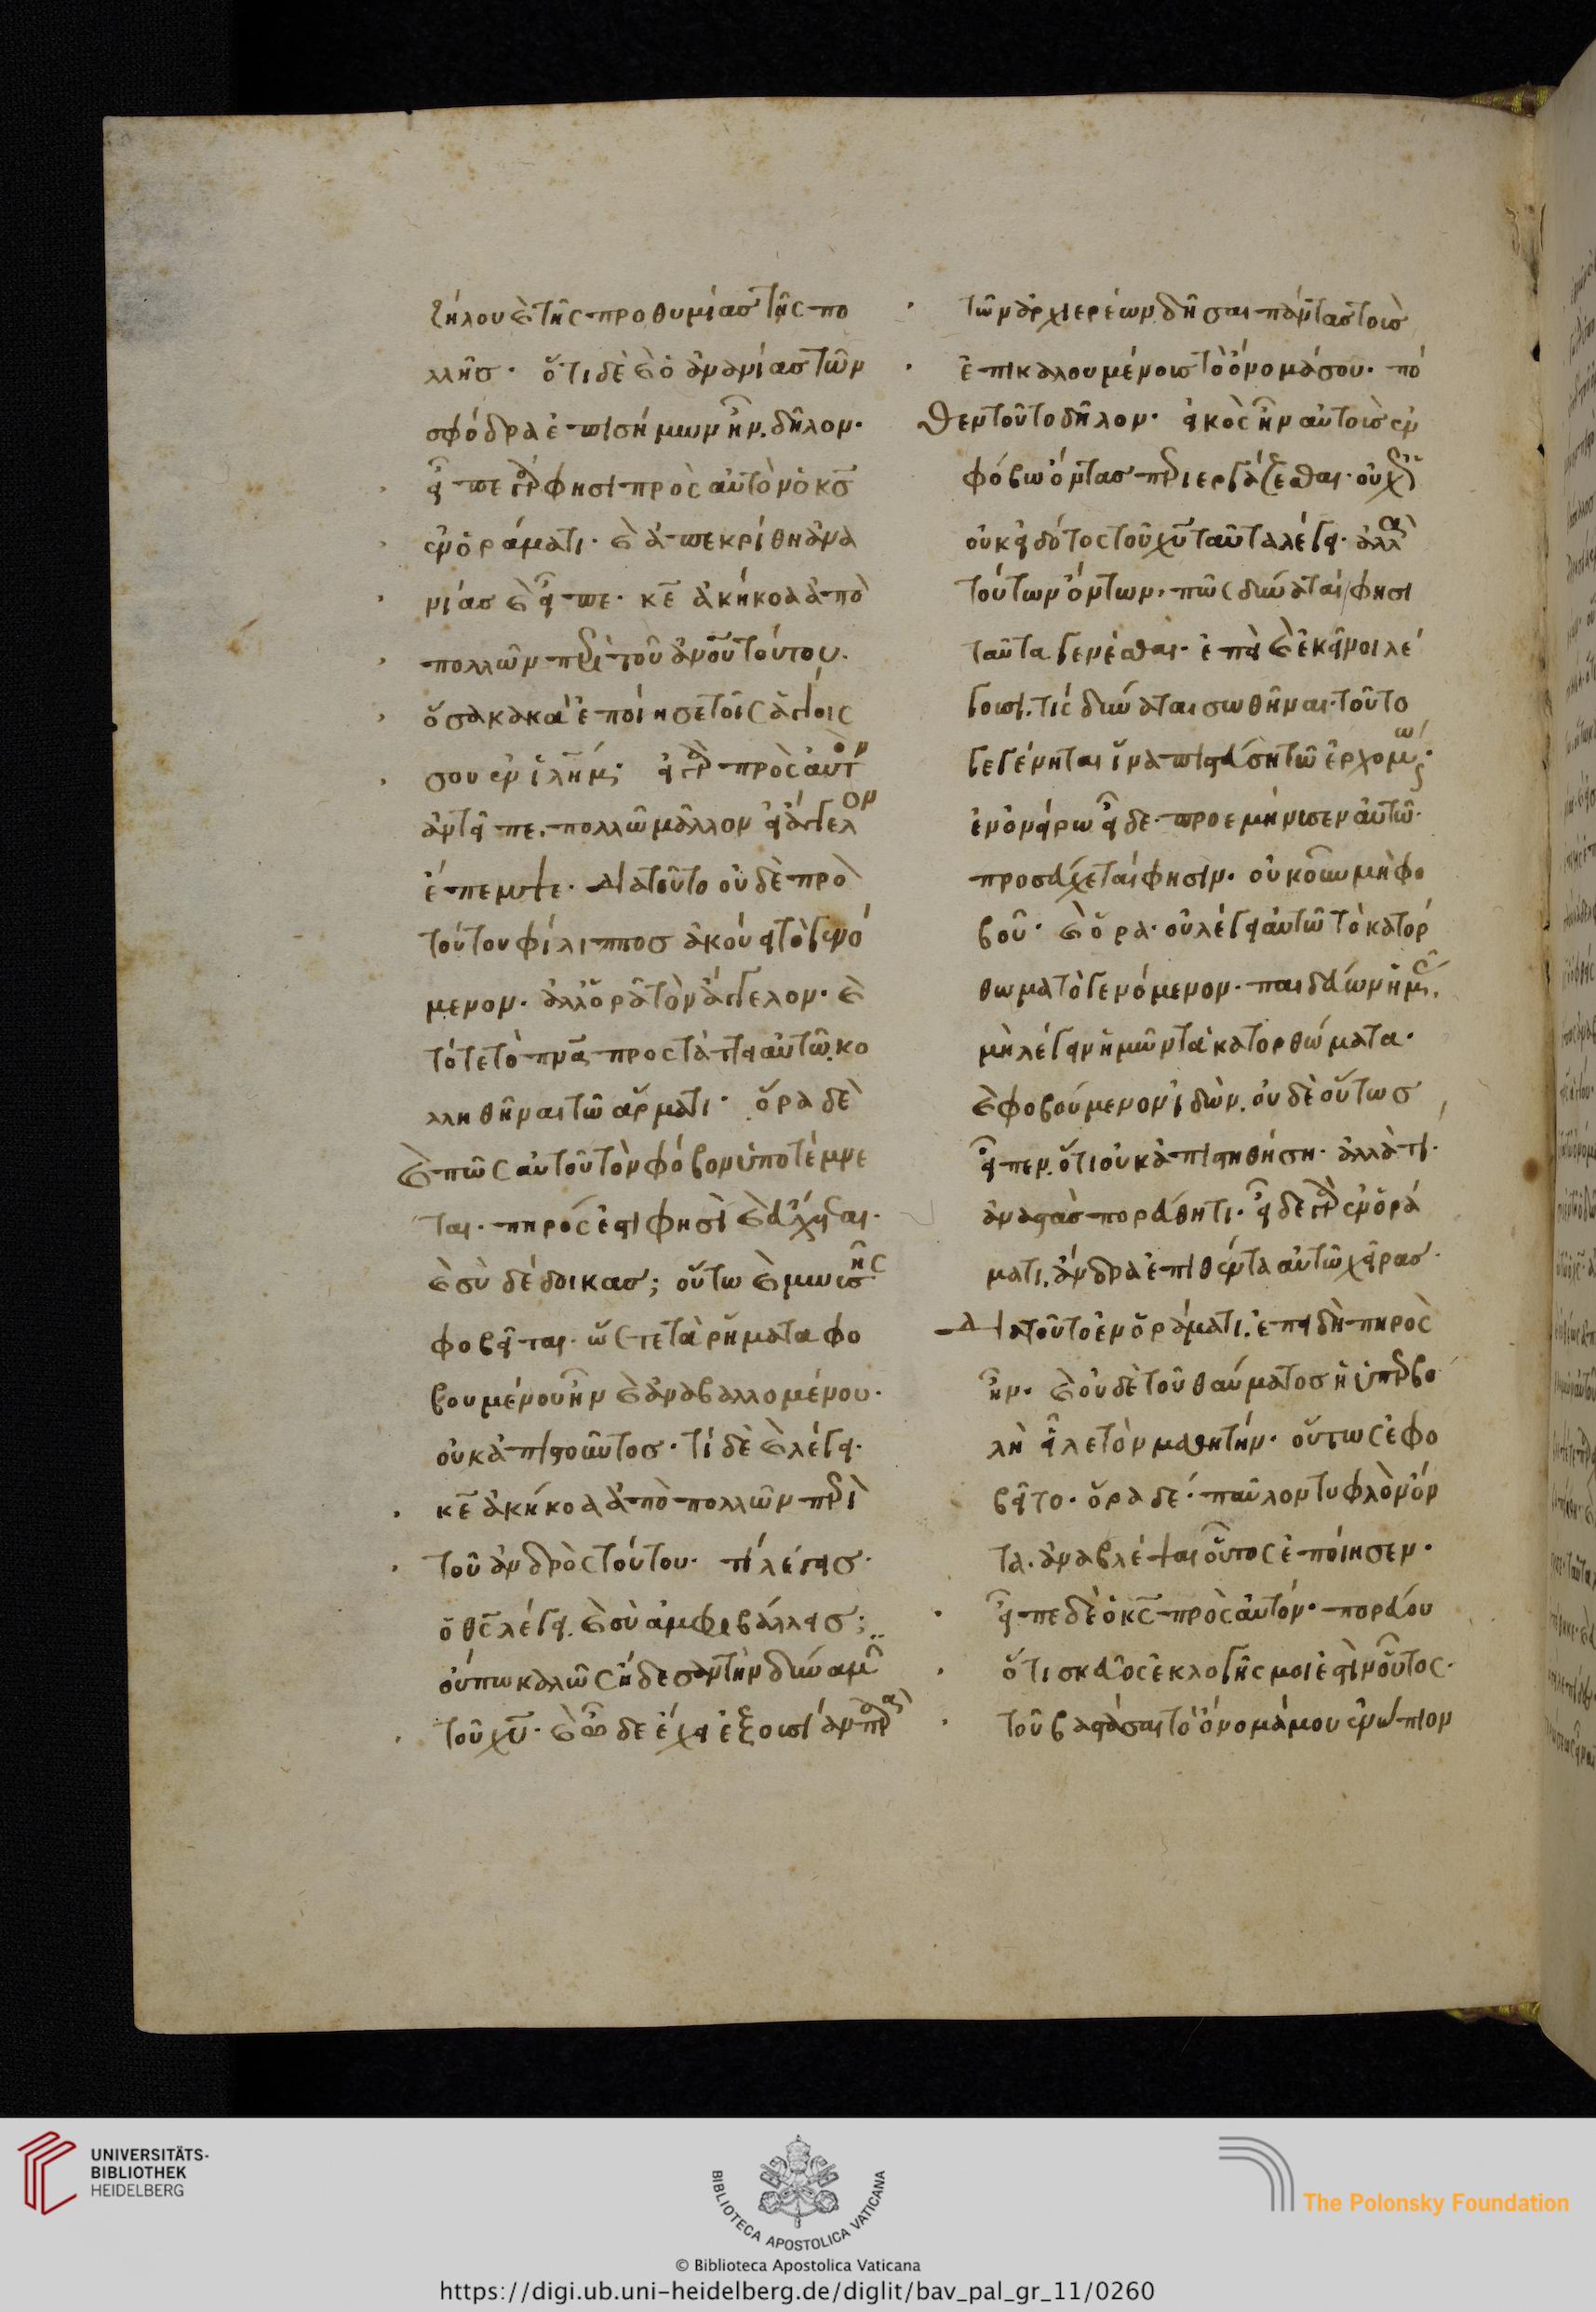 ζήλου καὶ τῆς προθυμίας τῆς πο
λλῆς· ὅτι δὲ καὶ ὁ ἀνανίας τῶν
σφόδρα ἐπισήμων ἦν. δῆλον·
εἶπε γάρ φησι πρὸς αὐτὸν ὁ κς
ἐν ὁράματι· καὶ ἀπεκρίθη ἀνα
νίας καὶ εἶπε· κε ἀκήκοα ἀπὸ
πολλῶν περὶ τοῦ ἀνου τούτου.
ὅσα κακὰ ἐποίησε τοῖς ἁγίοις
σου ἐν ἱλημ· εἰ γὰρ πρὸς αὐτὸν
ἀντεῖπε. πολλῶ μᾶλλον εἰ ἄγγελον
ἔπεμψε. Διατοῦτο οὐδὲ πρὸ
τούτου φίλιππος ἀκούει τὸ γενό
μενον. ἀλλ' ὁρᾶ τὸν ἄγγελον. καὶ
τότε τὸ πνα προστάττει αὐτῶ. κο
λληθῆναι τῶ ἅρματι· ὅρα δὲ
καὶ πῶς αὐτοῦ τὸν φόβον ὑποτέμνε
ται. πηρός ἐστι φησὶ καὶ εὔχεται.
καὶ σὺ δέδοικας; οὕτω καὶ μωισῆς
φοβεῖται. ὥς τε τὰ ῥήματα φο
βουμένου ἦν καὶ ἀναβαλλομένου.
οὐκ ἀπιστοῦντος· τί δὲ καὶ λέγει.
κε ἀκήκοα ἀπὸ πολλῶν περὶ
τοῦ ἀνδρὸς τούτου. τί λέγεις.
ὁ θς λέγει. καὶ σὺ ἀμφιβάλλεις;
οὔπω καλῶς ἤδεσαν τὴν δύναμιν
τοῦ χυ. καὶ ὧδε ἔχει ἐξουσίαν παρὰ
τῶν ἀρχιερέων δῆσαι πάντας τοὺς
ἐπικαλουμένους τὸ ὄνομά σου. πό
θεν τοῦτο δῆλον· εἰκὸς ἦν αὐτοὺς ἐν
φόβω ὄντας περιεργάζεσθαι. οὐχ ὡς
οὐκ εἰδότος τοῦ χυ ταῦτα λέγει. ἀλλὰ
τούτων ὄντων. πῶς δύναται φησι
ταῦτα γενέσθαι. ἐπεὶ καὶ ἐκεῖνοι λέ
γουσι. τίς δύναται σωθῆναι. τοῦτο
γεγένηται ἵνα πιστεύση τῶ ἐρχομένω.
ἐν ὀνείρω εἶδε. προεμήνυσεν αὐτῶ.
προσεύχεται φησιν. οὐκοῦν μὴ φο
βοῦ· καὶ ὅρα. οὐ λέγει αὐτῶ τὸ κατόρ
θωμα τὸ γενόμενον. παιδεύων ἡμᾶς.
μὴ λέγειν ἡμῶν τὰ κατορθώματα.
καὶ φοβούμενον ἰδών. οὐδὲ οὕτως
εἶπεν. ὅτι οὐκ ἀπιστηθήση. ἀλλὰ τί.
ἀναστὰς πορεύθητι. εἶδε γὰρ ἐν ὁρά
ματι. ἄνδρα ἐπιθέντα αὐτῶ χεῖρας.
Διατοῦτο ἐν ὁράματι. ἐπειδὴ πηρὸς
ἦν. καὶ οὐδὲ τοῦ θαύματος ἡ ὑπερβο
λὴ εἷλε τὸν μαθητήν. οὕτως ἐφο
βεῖτο. ὅρα δέ. παῦλον τυφλὸν ὄν
τα. ἀναβλέψαι οὗτος ἐποίησεν.
εἶπε δὲ ὁ κς πρὸς αὐτόν. πορεύου
ὅτι σκεῦος ἐκλογῆς μοι ἐστὶν οὗτος.
τοῦ βαστάσαι τὸ ὄνομά μου ἐνώπιον
UNIVERSITÄTS-
BIBLIOTHEK
HEIDELBERG
BIBLIOTECA APOSTOLICA VATICANA
© Biblioteca Apostolica Vaticana
The Polonsky Foundation
https://digi.ub.uni-heidelberg.de/diglit/bav_pal_gr_11/0260